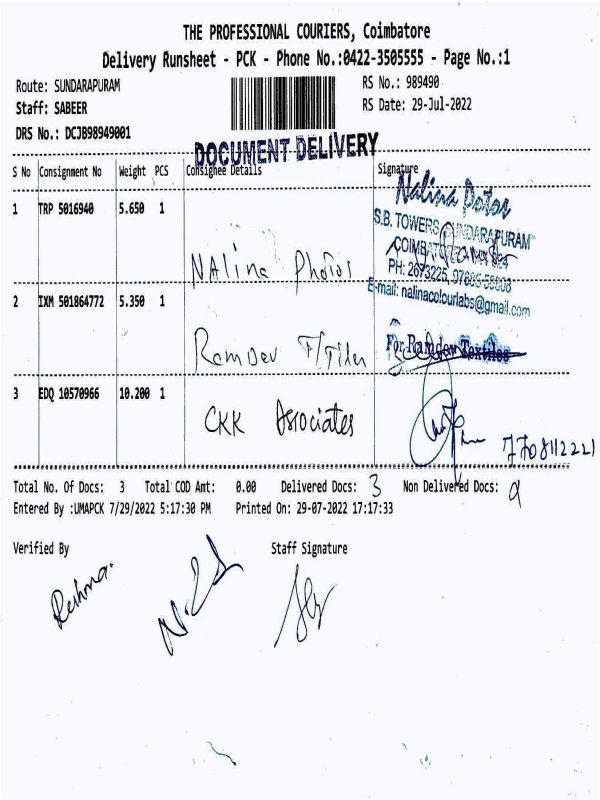 THE PROFESSIONAL COURIERS, Coimbatore
Delivery Runsheet - PCK - Phone No.:0422-3505555 - Page No.:1
Route: SUNDARAPURAM
RS No.: 989490
Staff: SABEER
RS Date: 29-Jul-2022
DRS No.: DCJB98949001
DOCUMENT DELIVERY
S No Consignment No Weight PCS Consignee Details Signature
1 TRP 5016940 5.650 1
NAlina Photos
Nalina
S.B. TOWERS, SUNDARAPURAM
COIMBATORE
PH: 2673225,
E-mail: nalinacolourlabs@gmail.com
2 IXM 501864772 5.350 1
Ramdev
For Ramdew Textiles
3 EDQ 10570966 10.200 1
CKK Associates
7708112221
Total No. Of Docs: 3 Total COD Amt: 0.00 Delivered Docs: 3 Non Delivered Docs:
Entered By :UMAPCK 7/29/2022 5:17:30 PM Printed On: 29-07-2022 17:17:33
Verified By Staff Signature
Reshma.